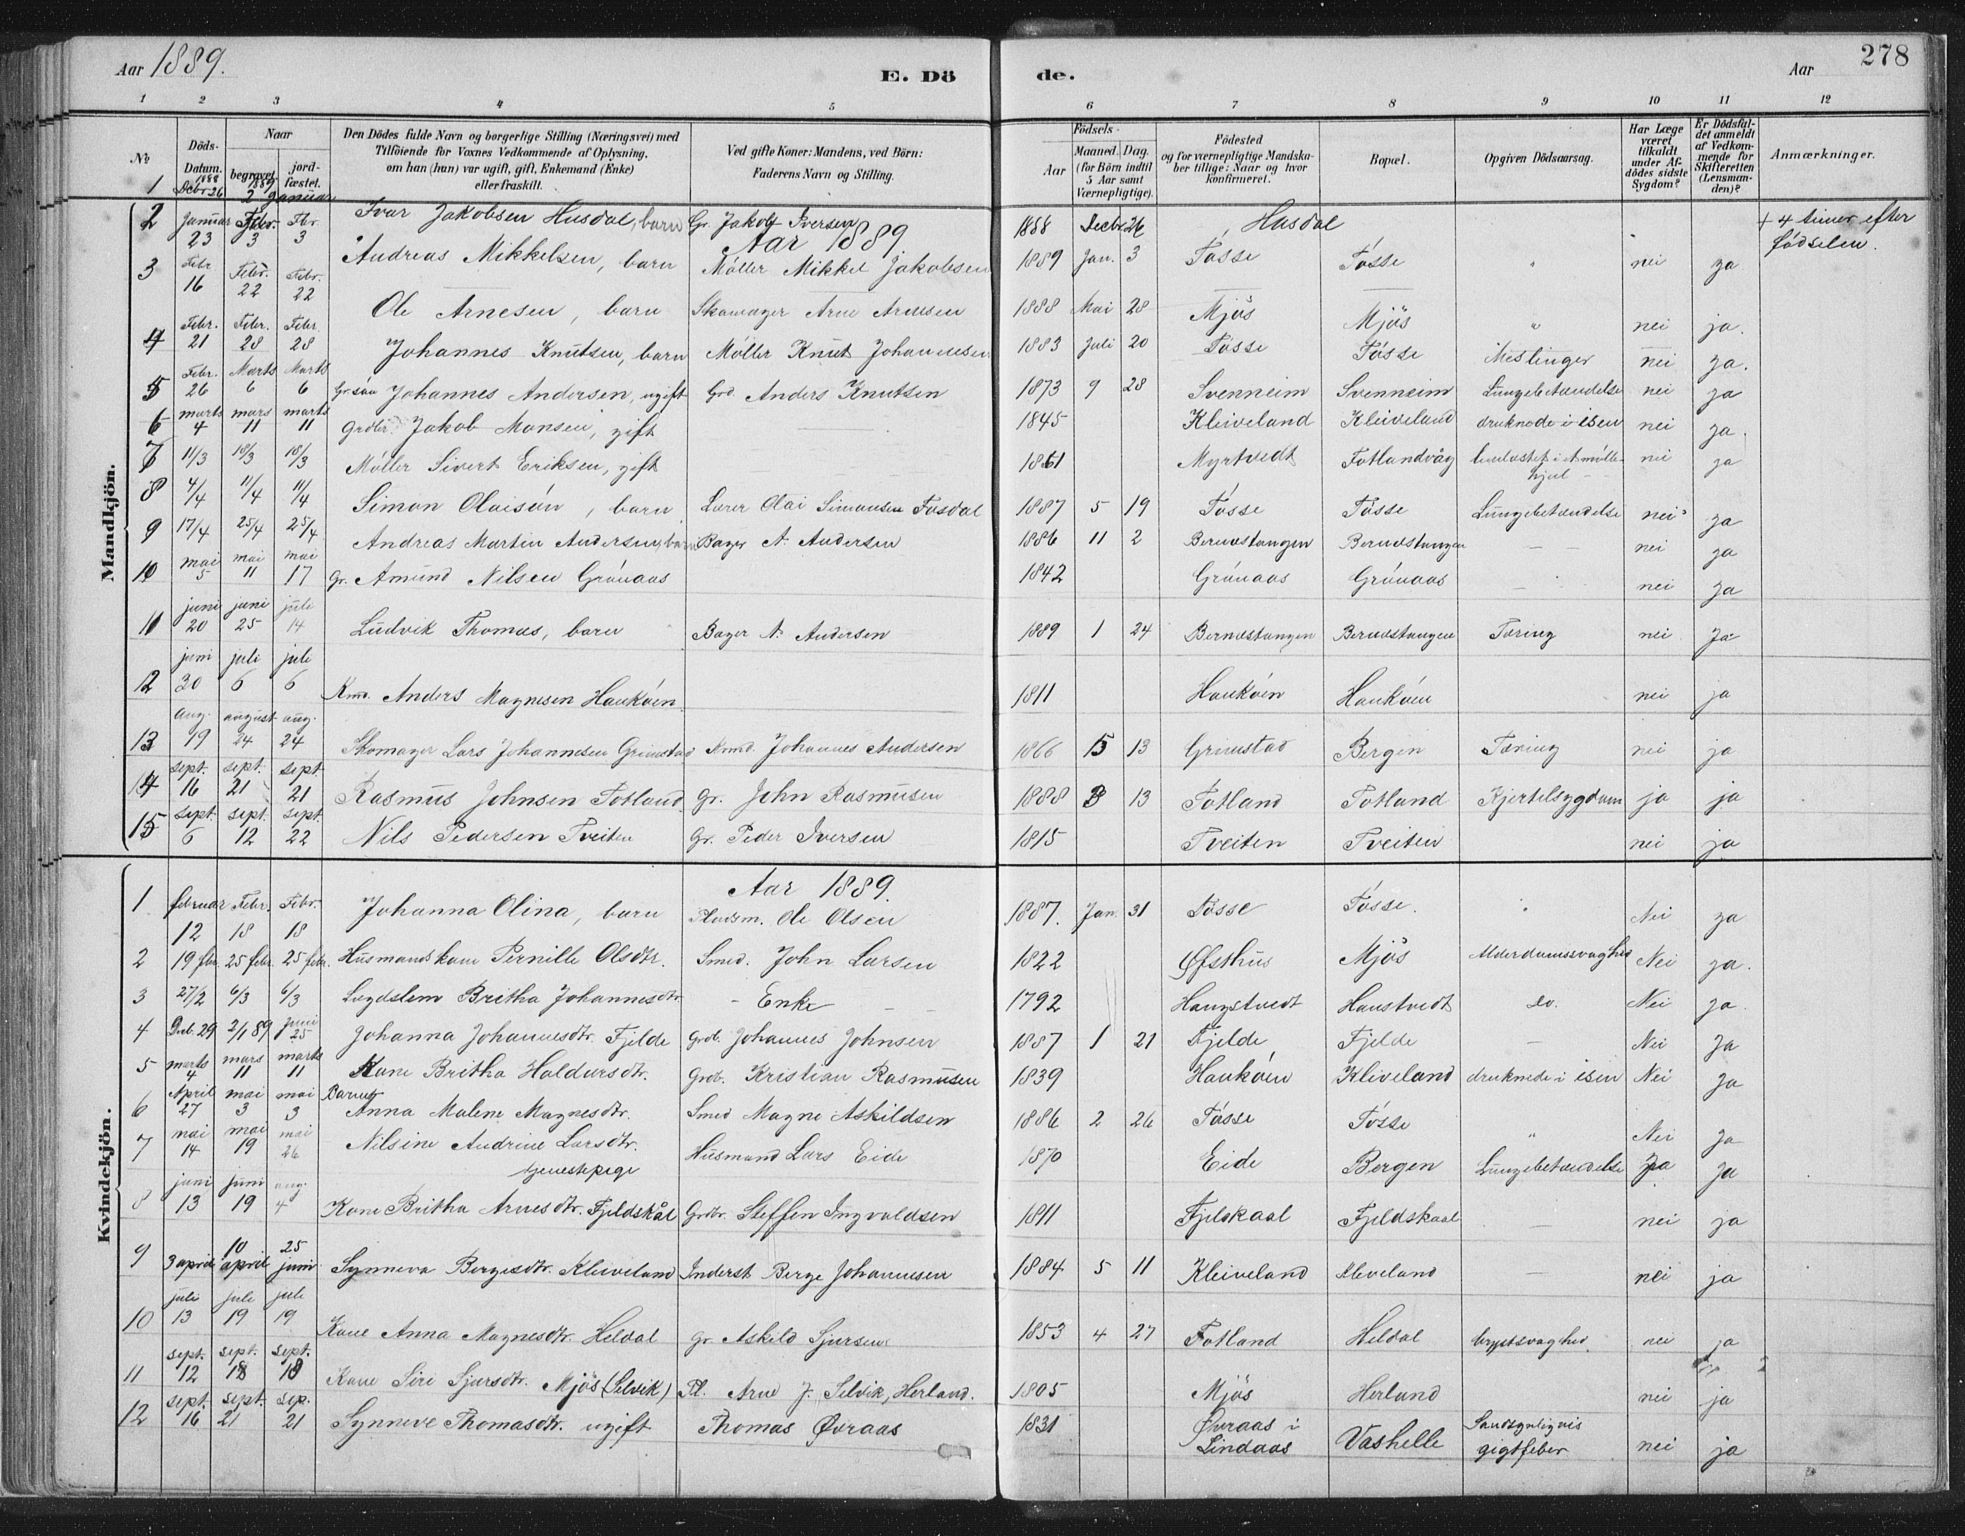 Aar 1889.
E. Dö
de.
Aar
278
1 2 3 4 5 6 7 8 9 10 11 12
No
Döds-
Datum.
Naar
begravet.
jord-
fæstet.
Den Dödes fulde Navn og borgerlige Stilling (Næringsvei) med
Tilföiende for Voxnes Vedkommende af Oplysning,
om han (hun) var ugift, gift, Enkemand (Enke)
eller fraskilt.
Ved gifte Koner: Mandens, ved Börn:
Faderens Navn og Stilling.
Födsels-
Aar
Maaned. Dag.
(for Börn indtil
5 Aar samt
Værnepligtige).
Födested
og for værnepligtige Mandska-
ber tillige: Naar og hvor
konfirmeret.
Bopæl.
Opgiven Dödsaarsag.
Har Læge
været
tilkaldt
under Af-
dödes sidste
Sygdom?
Er Dödsfal-
det anmeldt
af Vedkom-
mende for
Skifteretten
(Lensman-
den)?
Anmærkninger.
Mandkjön.
1 1888 Decbr 26 1889 2 9 Januar Ivar Jakobsen Husdal, barn Gr. Jakob Iversen 1888 Decbr 26 Husdal + 4 timer efter
fødselen.
Aar 1889.
2 Januar 23 Febr. 3 Febr. 3 Andreas Mikkelsen, barn Møller Mikkel Jakobsen 1889 Jan. 3 Tósse Tósse " nei ja
3 Febr 16 Febr. 22 Febr. 22 Ole Arnesen, barn Skomager Arne Arnesen 1888 Mai 28 Mjös Mjös " nei ja.
4 Febr. 21 Febr. 28 Febr. 28 Johannes Knutsen, barn Møller Knut Johannesen 1883 Juli 20 Tósse Tósse Meslinger nei ja.
5 Febr. 26 Marts 6 Marts 6 Gr.sön Johannes Andersen, ugift Grd. Anders Knutsen 1873 9 28 Svenheim Svenheim Lungebetændelse nei ja
6 marts 4 mars 11 marts 11 Grdbr. Jakob Monsen, gift 1845 Kleiveland Kleiveland druknede i isen nei ja.
7 11/3 18/3 18/3 Møller Sivert Eriksen, gift 1861 Myrtvedt Totlandvåg nei ja
8 4/4 11/4 11/4 Simon Olaisön, barn Lærer Olai Simonsen Fosdal 1887 5 19 Tósse Tósse Lungebetændelse nei ja
9 17/4 25/4 25/4 Andreas Martin Andersen, barn Bager A. Andersen 1886 11 2 Berndstangen Berndstangen — nei ja
10 mai 5 mai 11 mai 17 Gr. Amund Nilsen Grónaas 1842 Grónaas Grónaas nei ja
11 juni 20 juni 25 juli 14 Ludvik Thomas, barn Bager A. Andersen 1889 1 24 Berndstangen Berndstangen Tæring nei Ja
12 juni 30 juli 6 juli 6 Kmd. Anders Magnesen Haukóen 1811 Haukóen Haukóen nei ja
13 Aug. 19 august 24 aug. 24 Skomager Lars Johannesen Grimstad Kmd. Johannes Andersen 1866 5 13 Grimstad Bergen Tæring nei ja
14 sept. 16 sept. 21 sept. 21 Rasmus Johnsen Totland Gr. John Rasmusen 1888 3 13 Totland Totland Kjertelsygdom ja ja
15 sept. 6 sept. 12 sept. 22 Nils Pedersen Tveiten Gr. Peder Iversen 1815 Tveiten Tveiten nei ja
Kvindekjön.
Aar 1889.
1 februar 12 Febr. 18 Febr. 18 Johanna Olina, barn Pladsm. Ole Olsen 1887. Jan. 31 Tósse Tósse. " Nei ja
2 19 fbr. 25 febr. 25 febr. Husmandskone Pernille Olsdtr. Smed. John Larsen 1822 Øfsthus Mjös Alderdomssvaghed Nei ja.
3 27/2 6/3 6/3 Lægdslem Britha Johannesdtr. - Enke 1792 Haugstvedt Haustvedt do. Nei ja.
4 Decb. 29 2/1 89 Juni 25 Johanna Johannesdtr. Fjelde Grdb. Johannes Johnsen 1887 1 21 Fjelde Fjelde — Nei Ja
5 marts 4 mars 11 marts 11 Kone Britha Haldorsdtr. Grdb. Kristian Rasmusen 1839 Haukóen Kliveland druknede i isen Nei Ja
6 April 27 mai 3 mai 3 Barnet Anna Malene Magnesdtr. Smed Magne Askildsen 1886 2 26 Tósse Tósse " Nei Ja
7 mai 14 mai 19 mai 26 Nilsine Andrine Larsdtr. Husmand Lars Eide 1870 Eide Bergen Lungebetændelse Ja Ja
tjenestepige
8 juni 13 juni 19 aug. 4 Kone Britha Arnesdtr. Fjeldskål Grdbr. Steffen Ingvaldsen 1811 Fjelskaal Fjeldskaal — nei ja
9 3 april 10 april 25 juni Synneva Bergesdtr. Kleiveland Inderst Berge Johannesen 1884 5 11 Kleiveland Kleveland — nei ja
10 juli 13 juli 19 juli 19 Kone Anna Magnesdtr. Heldal Gr. Askeld Sjursen 1853 4 27 Totland Heldal brystsvaghed. nei ja
11 sept. 12 sept. 18 sept. 18 Kone Siri Sjursdtr. Mjös (Selvik) Pl. Arne J. Selvik, Herland. 1805 Mjös Herland nei ja
12 sept. 16 sept. 21 sep. 21 Synneve Thomasdtr. ugift Thomas Øvraas 1831 Øvraas i
Lindaas Vashelle Sandsynligvis
gigtfeber nei ja